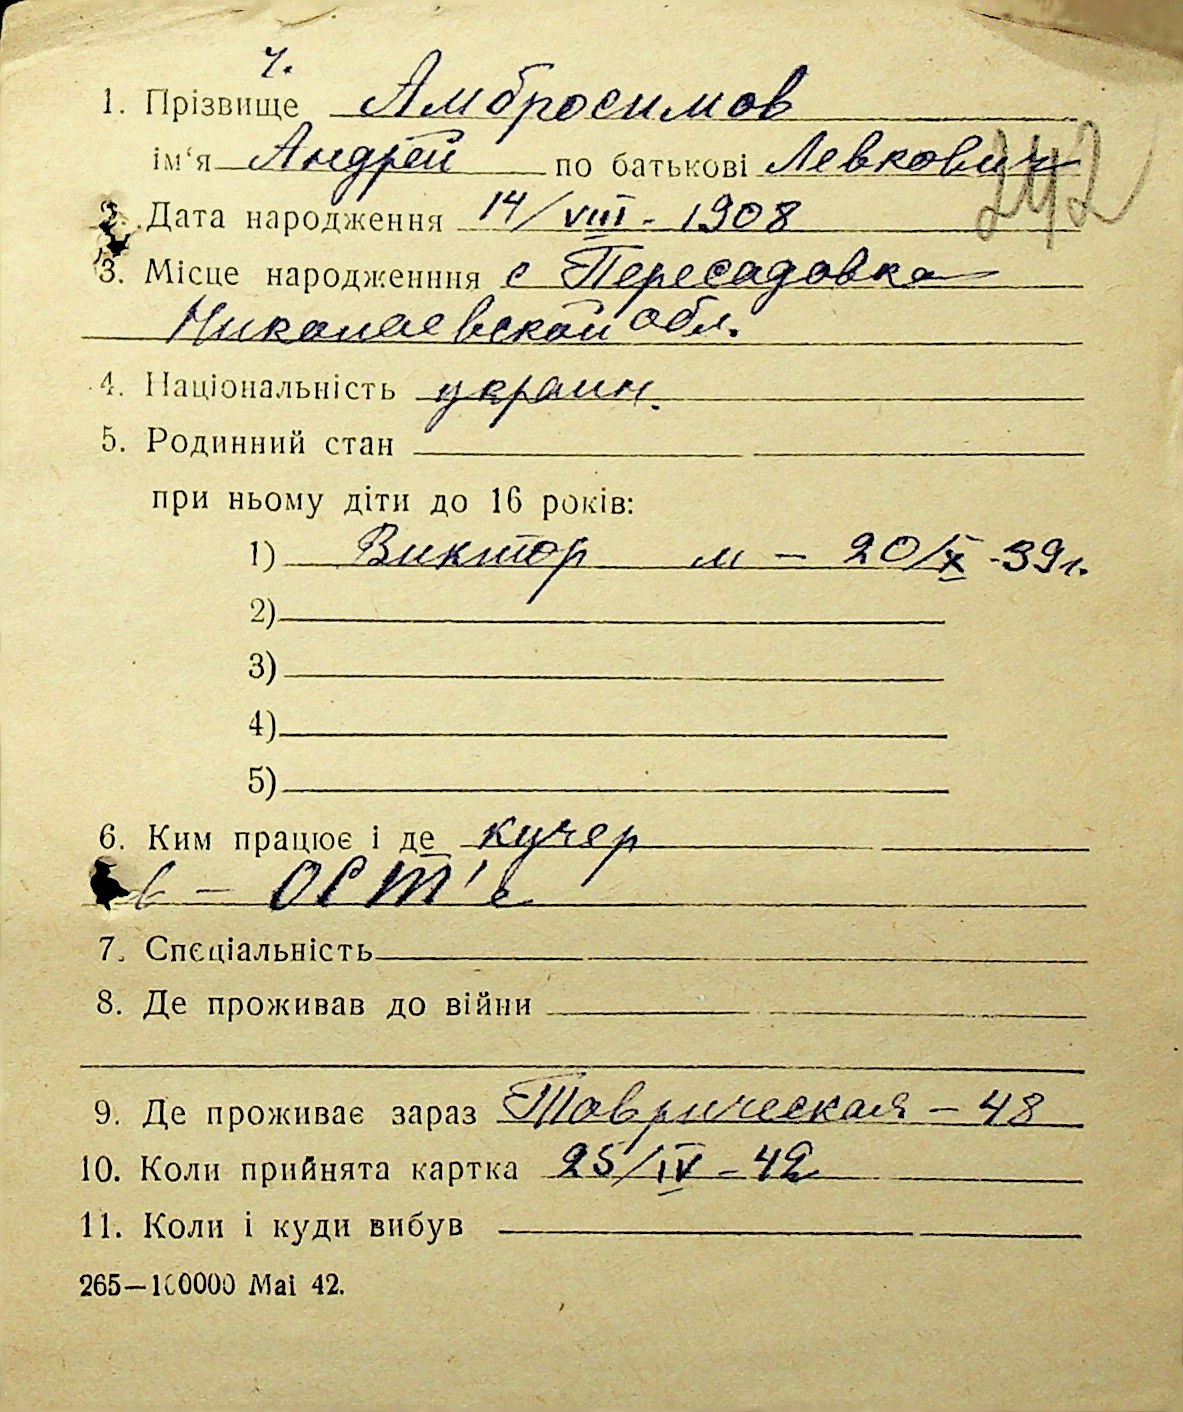 ч.
1. Прізвище Амбросимов
ім‘я Андрей по батькові Левкович
242
2. Дата народження 14/VIII - 1908
3. Місце народженння с Пересадовка
Николаевской обл.
4. Національність украин.
5. Родинний стан
при ньому діти до 16 років:
1) Виктор м – 20/X -39г.
2)
3)
4)
5)
6. Ким працює і де кучер
в – ОСТ'е
7. Спеціальність
8. Де проживав до війни
9. Де проживає зараз Таврическая – 48
10. Коли прийнята картка 25/IV - 42
11. Коли і куди вибув
265—100000 Mai 42.